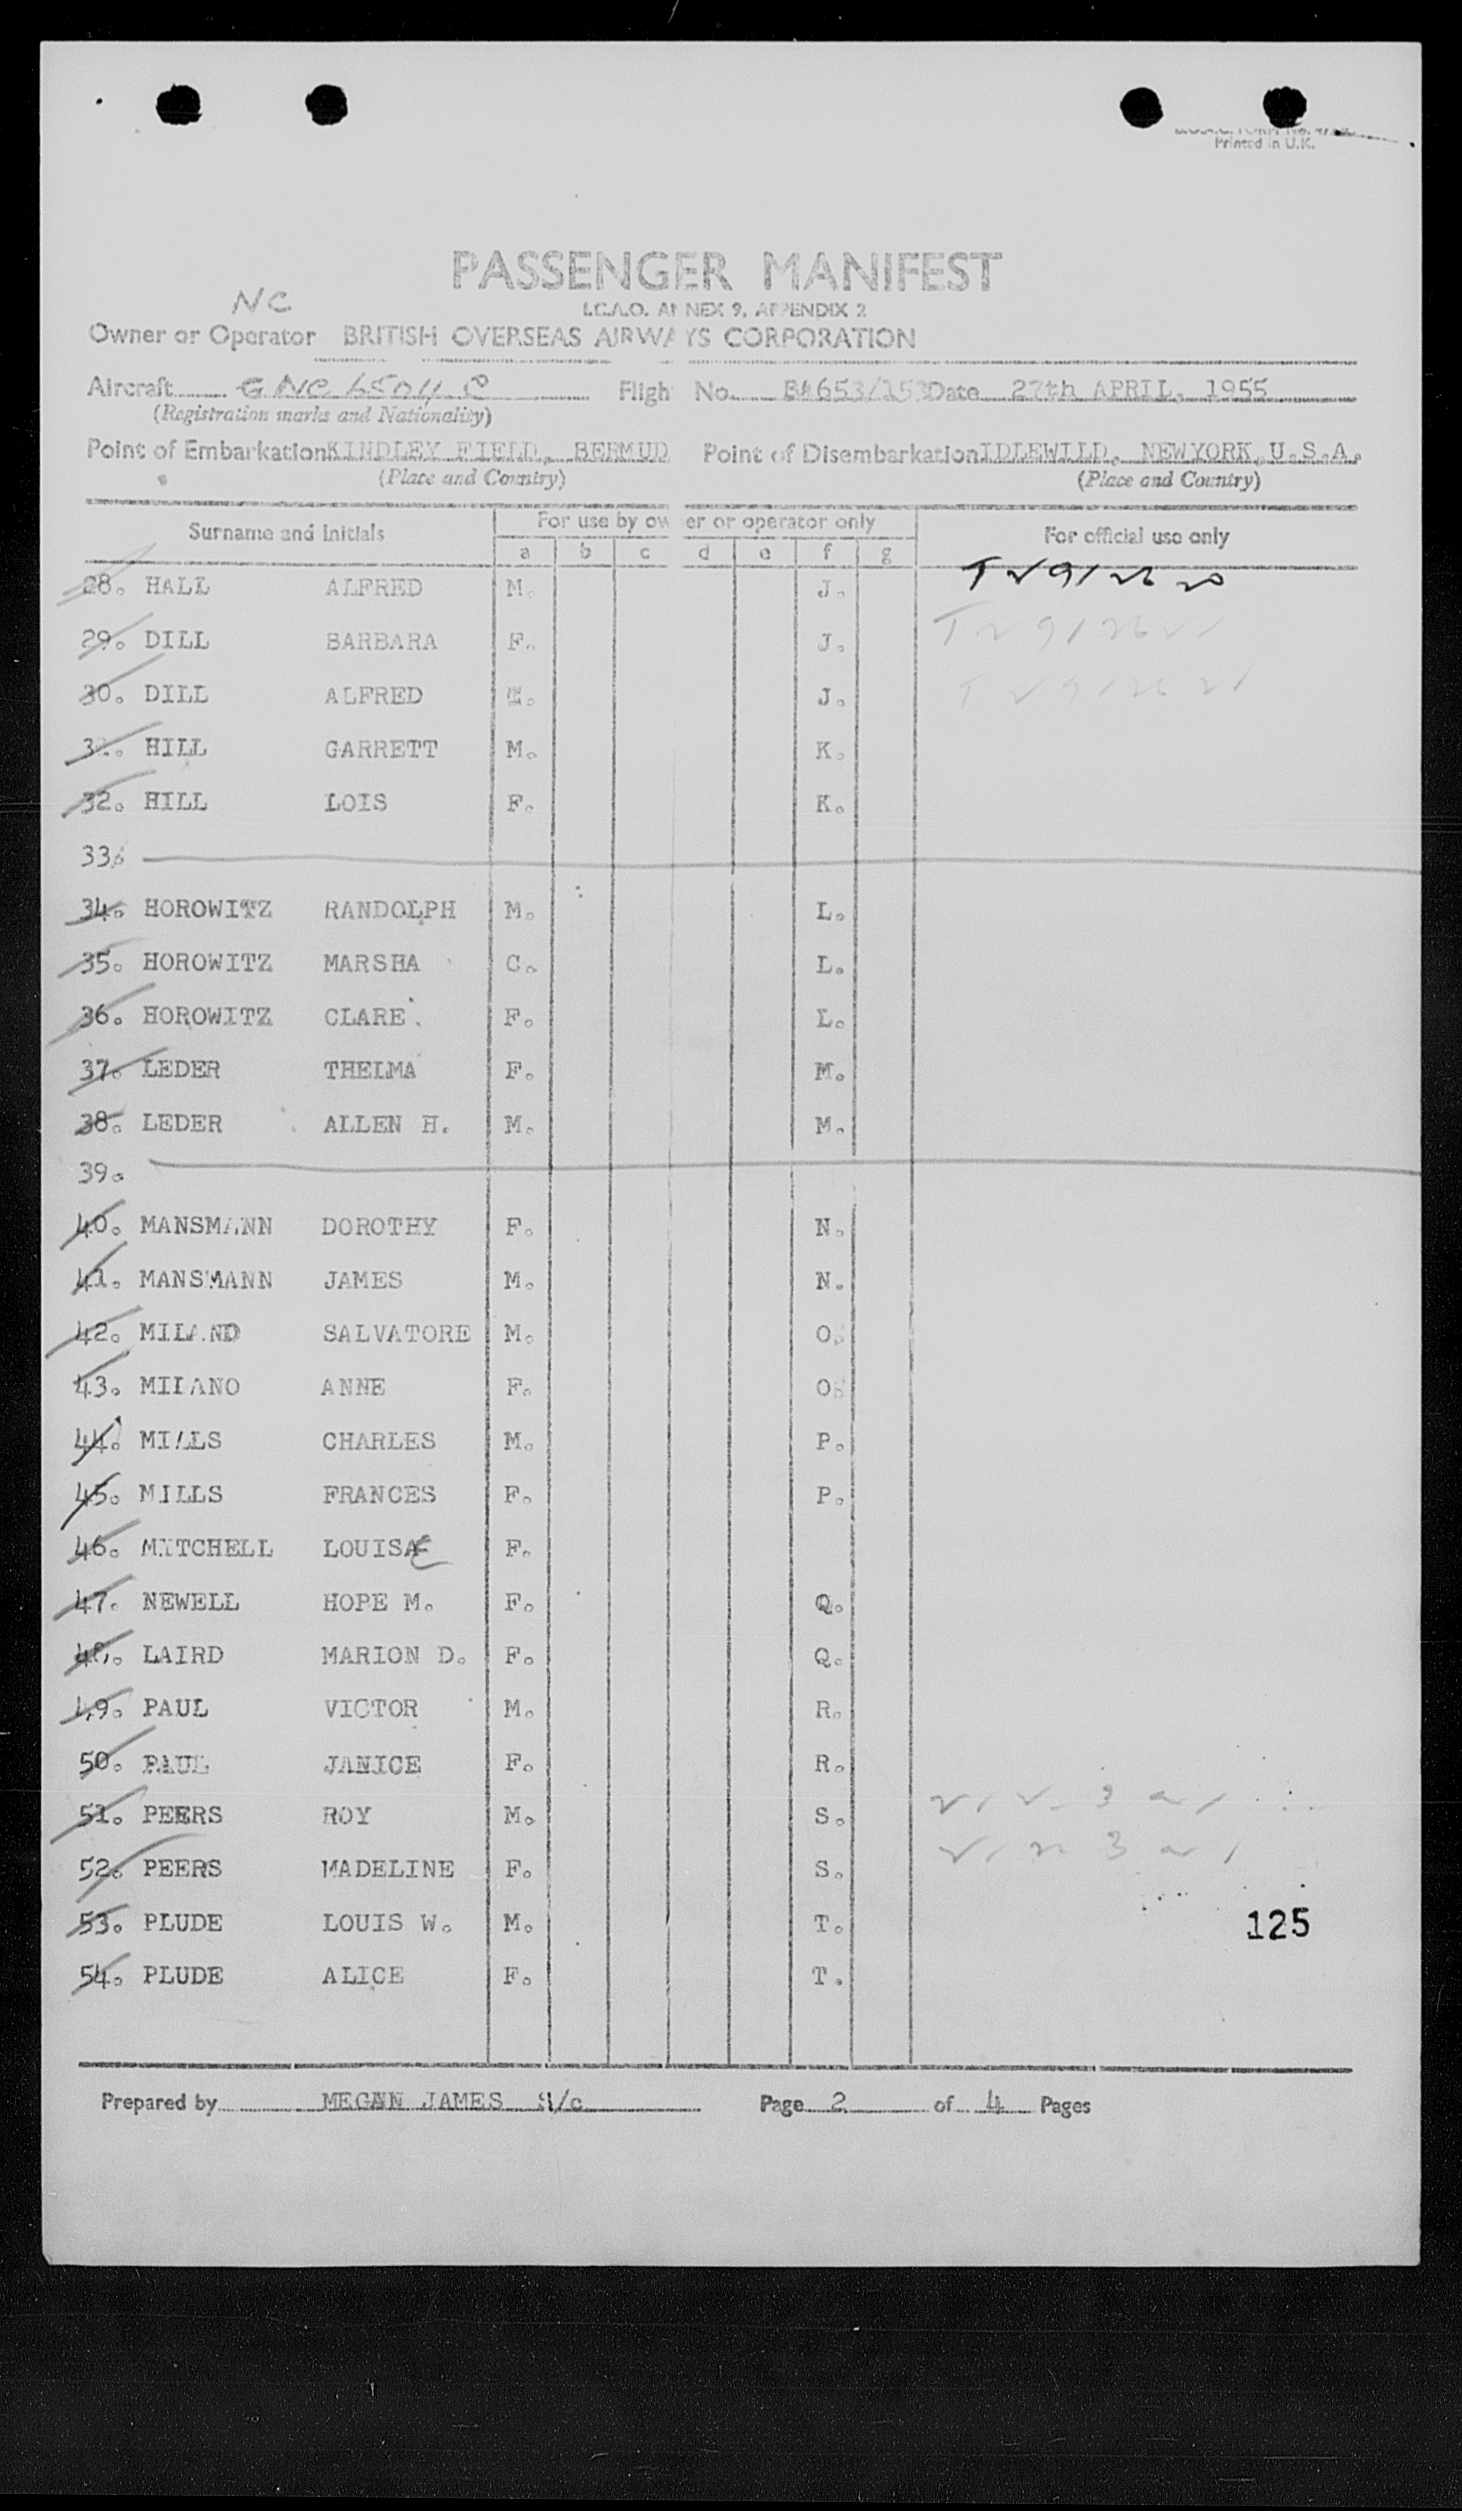 Printed in U.K.
PASSENGER MANIFEST
I.C.A.O. ANNEX 9, APPENDIX 2
NC
Owner or Operator BRITISH OVERSEAS AIRWAYS CORPORATION
Aircraft Flight No. BA653/153 Date 27th APRIL, 1955
(Registration marks and Nationality)
Point of Embarkation KINDLEY FIELD, BERMUD Point of Disembarkation IDLEWILD, NEWYORK, U.S.A.
(Place and Country) (Place and Country)
Surname and Initials For use by owner or operator only For official use only
a b c d e f g
28. HALL ALFRED M. J.
29. DILL BARBARA F. J.
30. DILL ALFRED J.
31. HILL GARRETT M. K.
32. HILL LOIS F. K.
33.
34. HOROWITZ RANDOLPH M. L.
35. HOROWITZ MARSHA C. L.
36. HOROWITZ CLARE F. L.
37. LEDER THELMA F. M.
38. LEDER ALLEN H. M. M.
39.
40. MANSMANN DOROTHY F. N.
41. MANSMANN JAMES M. N.
42. MILANO SALVATORE M. O.
43. MILANO ANNE F. O.
44. MILLS CHARLES M. P.
45. MILLS FRANCES F. P.
46. MITCHELL LOUISE F.
47. NEWELL HOPE M. F. Q.
48. LAIRD MARION D. F. Q.
49. PAUL VICTOR M. R.
50. PAUL JANICE F. R.
51. PEERS ROY M. S.
52. PEERS MADELINE F. S.
53. PLUDE LOUIS W. M. T. 125
54. PLUDE ALICE F. T.
Prepared by MEGAN JAMES S/c Page 2 of 4 Pages